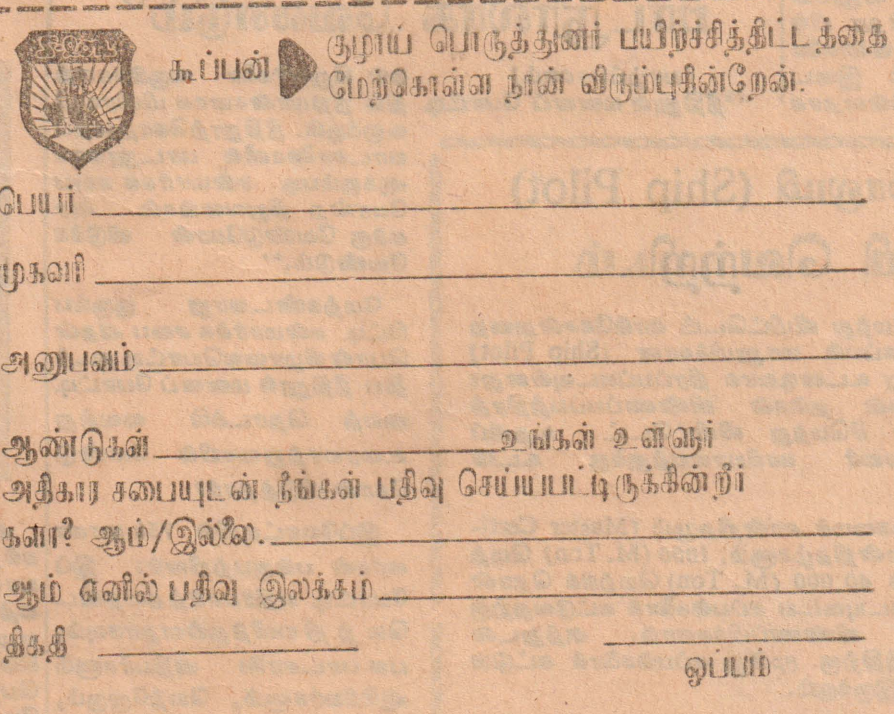 கூப்பன் குழாய் பொருத்துனர் பயிற்ச்சித்திட்டத்தை
மேற்கொள்ள நான் விரும்புகின்றேன்.
பெயர்
முகவரி
அனுபவம்
ஆண்டுகள் உங்கள் உள்ளுர்
அதிகார சபையுடன் நீங்கள் பதிவு செய்யபபட்டிருக்கின்றீர்
களா? ஆம்/இல்லை.
ஆம் எனில் பதிவு இலக்கம்
திகதி
ஒப்பம்